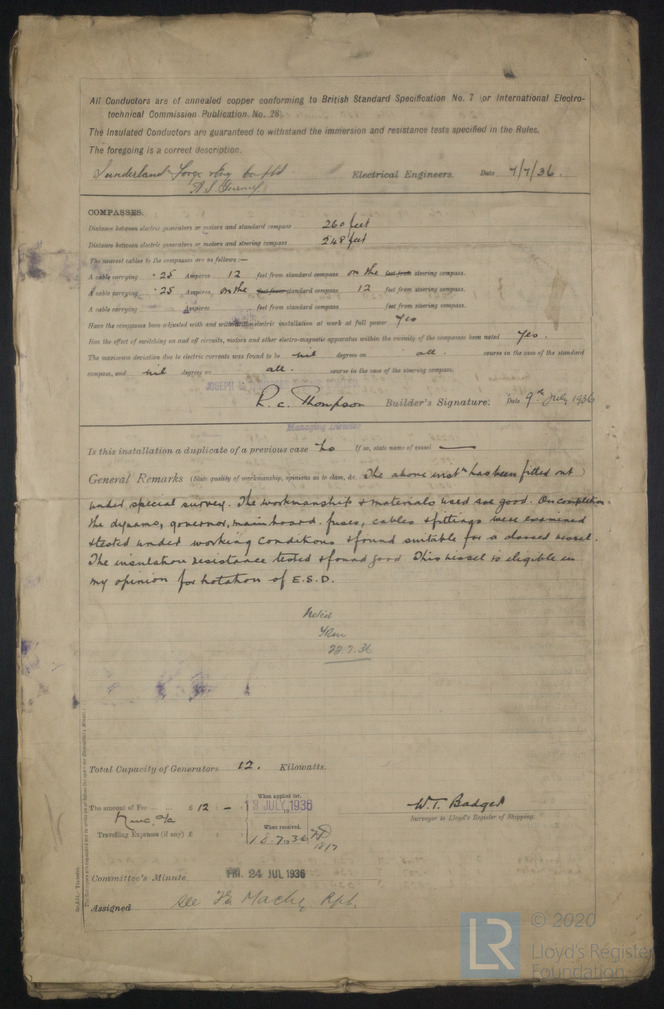 All Conductors are of annealed copper conforming to British Standard Specification No. 7 (or International Electro-
technical Commission Publication. No. 28).
The Insulated Conductors are guaranteed to withstand the immersion and resistance tests specified in the Rules.
The foregoing is a correct description.
Sunderland Forge Electrical Engineers. Date 7/7/36.
COMPASSES.
Distance between electric generators or motors and standard compass 260 feet
Distance between electric generators or motors and steering compass 248 feet
The nearest cables to the compasses are as follows:—
A cable carrying .25 Amperes 12 feet from standard compass on the feet from steering compass.
A cable carrying .25 Amperes on the feet from standard compass 12 feet from steering compass.
A cable carrying Amperes feet from standard compass feet from steering compass.
Have the compasses been adjusted with and without the electric installation at work at full power Yes
Has the effect of switching on and off circuits, motors and other electro-magnetic apparatus within the vicinity of the compasses been noted Yes.
The maximum deviation due to electric currents was found to be nil degrees on all. course in the case of the standard
compass, and nil degrees on all. course in the case of the steering compass.
JOSEPH L.
R. C. Thompson Builder's Signature. Date 9th July 1936
Managing Director
Is this installation a duplicate of a previous case No If so, state name of vessel —
General Remarks (State quality of workmanship, opinions as to class, &c. The above instn has been fitted out
under special survey. The workmanship & materials used are good. On completion
the dynamo, governor, main board. fuses, cables & fittings were examined
& tested under working conditions & found suitable for a classed vessel.
The insulation resistance tested & found good This vessel is eligible in
my opinion for notation of E.S.D.
Noted
28.7.36
Total Capacity of Generators 12. Kilowatts.
The amount of Fee £ 12 : - : When applied for,
13 JULY 1936
Travelling Expenses (if any) £ : : When received,
W.T. Badger
Surveyor to Lloyd's Register of Shipping.
Committee's Minute FRI. 24 JUL 1936
Assigned See Rpt.
© 2020
LR
Lloyd's Register
Foundation